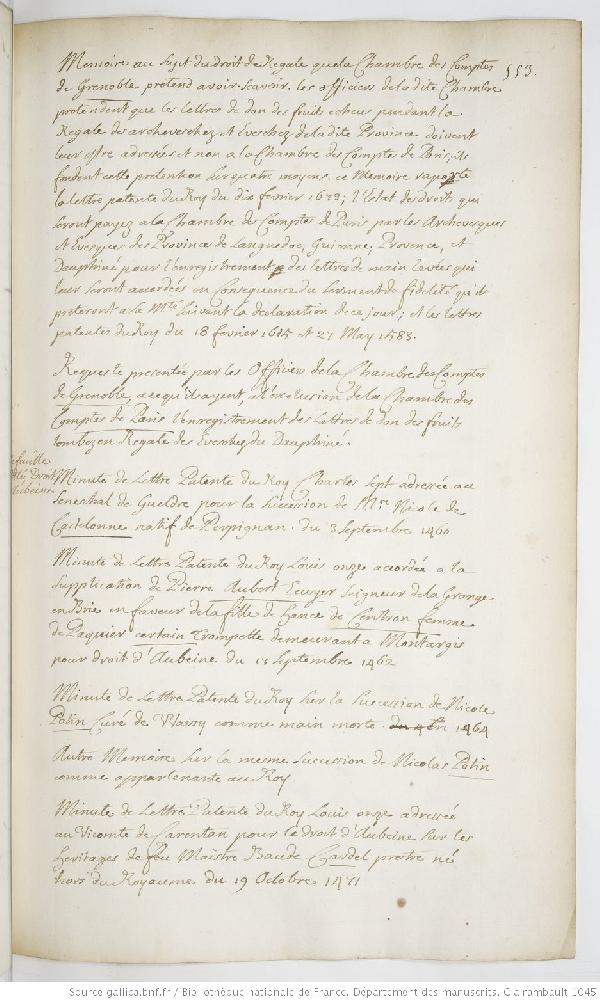 553.
Memoires au Sujet du droit de Regale que la Chambre des Comptes
de Grenoble pretend avoir scavoir. les officiers de la dite Chambre
pretendent que les lettres de don des fruits echeus pendant la
Regale des archeveschez et Eveschez de la dite Province doivent
leur estre adressées et non a la Chambre des Comptes de Paris, ils
fondent cette pretention sur quatre moyens, ce Memoire raporte
la lettre patente du Roy du dix fevrier 1629; l'Estat des droits qui
seront payez a la Chambre des Comptes de Paris par les Archevesques
et Evesques des Provinces de Languedoc, Guienne, Provence, et
Dauphiné pour l'enregistrement des lettres de main levées qui
leur seront accordées en consequence du serment de fidelité qu'ils
presteront a sa Mté suivant la declaration de ce jour; et les lettres
patentes du Roy du 18 fevrier 1615 et 27 May 1583.
Requeste presentée par les Officiers de la Chambre des Comptes
de Grenoble, a ce qu'ils ayent a l'exclusion de la Chambre des
Comptes de Paris l'enregistrement des Lettres de don des fruits
tombez en Regale des Eveschez du Dauphiné.
Droit
d'aubeine
Minute de Lettre Patente du Roy Charles sept adressée au
Seneschal de Gueldre pour la Succession de Me Nicole de
Castelonne natif de Perpignan. du 3 septembre 1460
Minute de Lettre Patente du Roy Louis onze accordée a la
supplication de Pierre Aubert Ecuyer Seigneur de la Grange
en Brie en faveur de la fille de Hance de Centron femme
de Paquier certain Trompette demeurant a Montargis
pour droit d'Aubeine du 13 septembre 1462
Minute de Lettre Patente du Roy sur la Succession de Nicole
Potin Curé de Blaezy comme main morte. 1464
Autre Memoire sur la mesme Succession de Nicolas Potin
comme appartenante au Roy
Minute de Lettre Patente du Roy Louis onze adressée
au Vicomte de Carentan pour le droit d'Aubeine sur les
heritages de feu Maistre Baude Cardel prestre né
hors du Royaume du 19 Octobre 1471
Source gallica.bnf.fr / Bibliothèque nationale de France. Département des manuscrits. Clairambault 1045